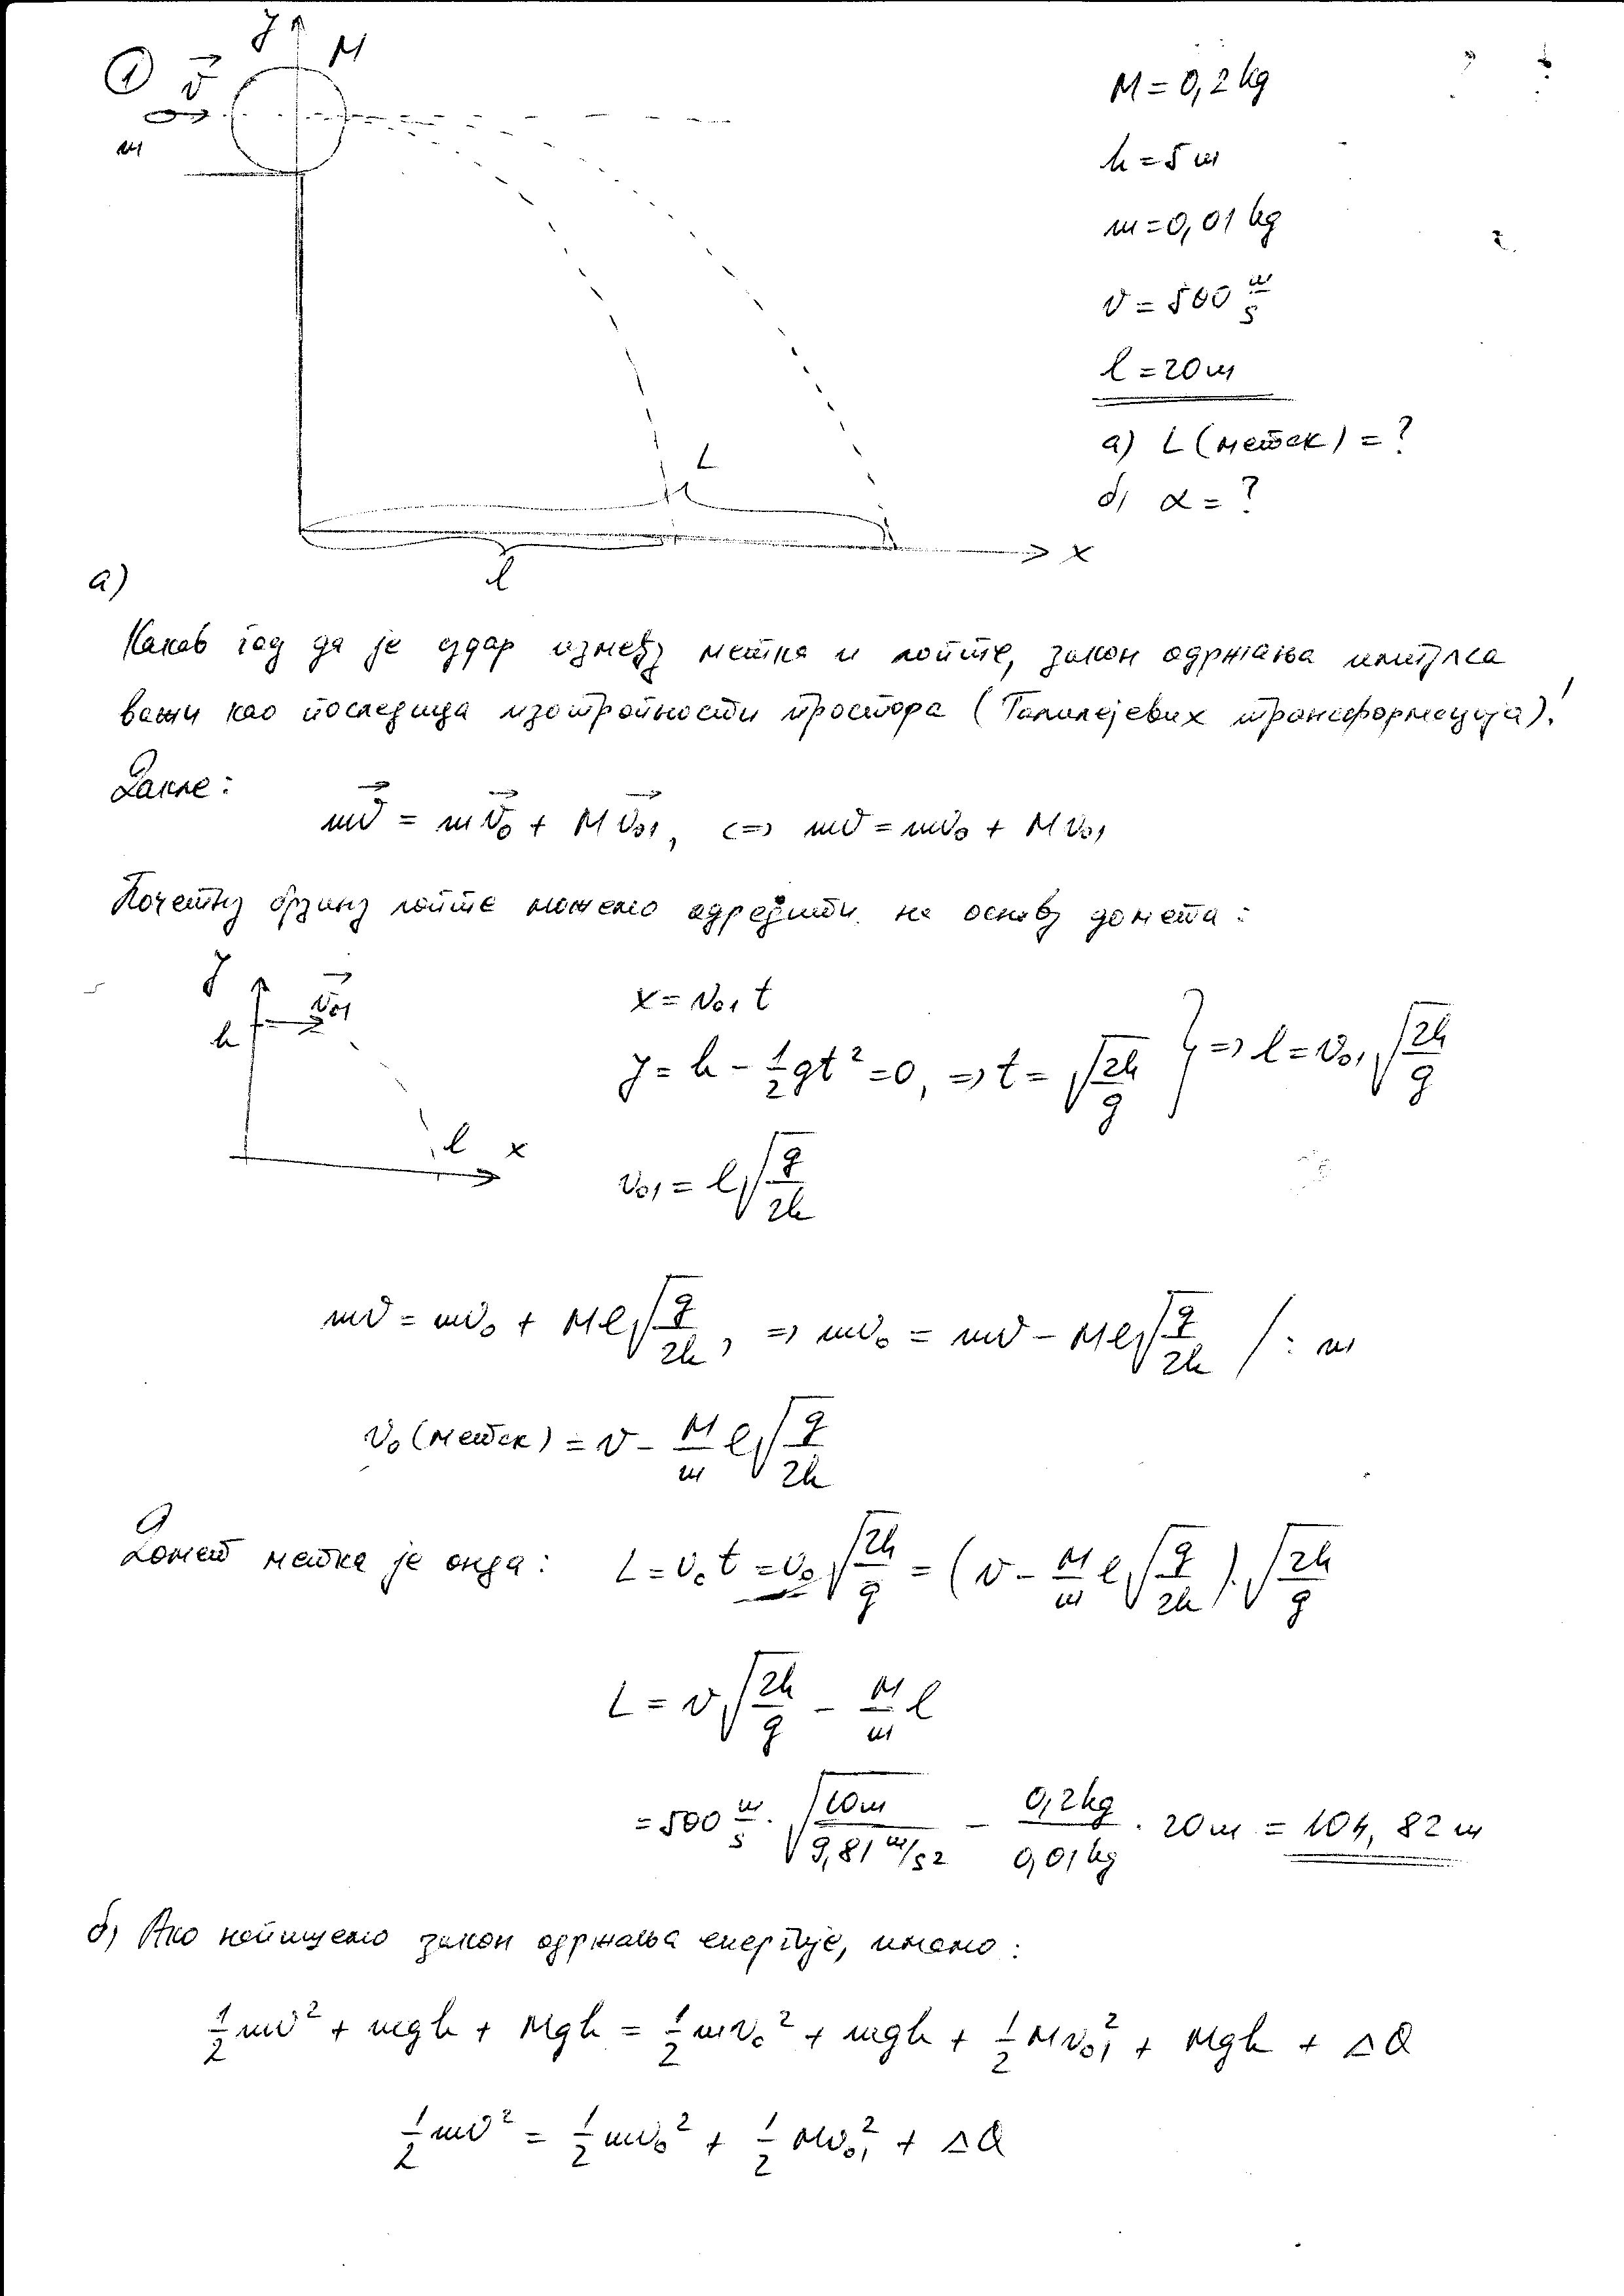 ① v⃗ y M
m
M = 0,2 kg
h = 5 m
m = 0,01 kg
v = 500 m/s
l = 20 m
а) L (метак) = ?
б) α = ?
L
l
x
а)
Какав год да је судар између метка и лопте, закон одржања импулса
важи као последица изотропности простора (Галилејевих трансформација)!
Дакле:
mv⃗ = mv⃗₀ + Mv⃗₀₁, <=> mv = mv₀ + Mv₀₁
Почетну брзину лопте можемо одредити на основу домета:
y
v⃗₀₁
h
l x
x = v₀₁ t
y = h - 1/2 gt² = 0, => t = √(2h/g) } => l = v₀₁ √(2h/g)
v₀₁ = l √(g/2h)
mv = mv₀ + Ml √(g/2h), => mv₀ = mv - Ml √(g/2h) / : m
v₀ (метак) = v - M/m l √(g/2h)
Домет метка је онда: L = v₀ t = v₀ √(2h/g) = (v - M/m l √(g/2h)) · √(2h/g)
L = v √(2h/g) - M/m l
= 500 m/s · √(10m / 9,81 m/s²) - 0,2 kg / 0,01 kg · 20 m = 104,82 m
б) Ако напишемо закон одржања енергије, имамо:
1/2 mv² + mgh + Mgh = 1/2 mv₀² + mgh + 1/2 Mv₀₁² + Mgh + ΔQ
1/2 mv² = 1/2 mv₀² + 1/2 Mv₀₁² + ΔQ